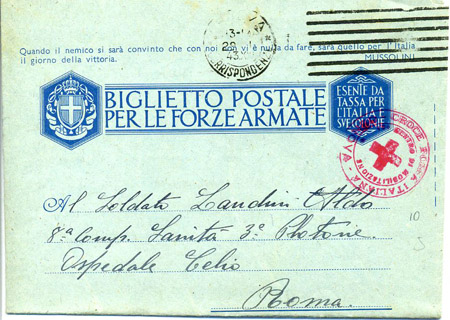 Quando il nemico si sarà convinto che con noi non vi è nulla da fare, sarà quello per l'Italia
il giorno della vittoria.
MUSSOLINI
BIGLIETTO POSTALE
PER LE FORZE ARMATE
ESENTE DA
TASSA PER
L'ITALIA E
SVE COLONIE
CROCE ROSSA ITALIANA
CENTRO DI MOBILITAZIONE
Al Soldato Landini Aldo
8ª Comp. Sanità 3º Plotone
Ospedale Celio
Roma.
10